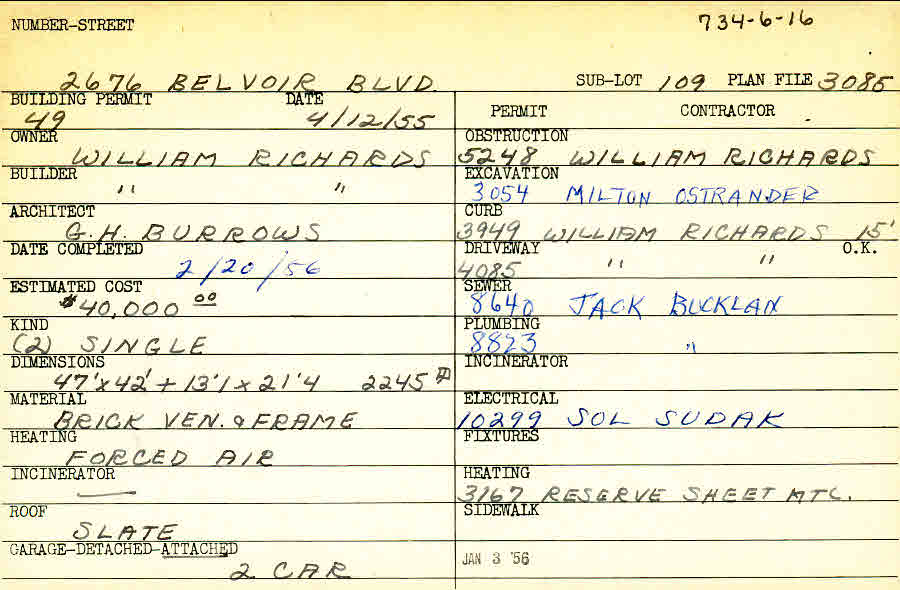 NUMBER-STREET 734-6-16
2676 BELVOIR BLVD. SUB-LOT 109 PLAN FILE 3085
BUILDING PERMIT DATE
49 4/12/55
OWNER
WILLIAM RICHARDS
BUILDER
" "
ARCHITECT
G.H. BURROWS
DATE COMPLETED
2/20/56
ESTIMATED COST
$40,000 00
KIND
(2) SINGLE
DIMENSIONS
47'x42' + 13'1 x 21'4 2245
MATERIAL
BRICK VEN. & FRAME
HEATING
FORCED AIR
INCINERATOR
—
ROOF
SLATE
GARAGE-DETACHED-ATTACHED
2 CAR
PERMIT CONTRACTOR
OBSTRUCTION
5248 WILLIAM RICHARDS
EXCAVATION
3054 MILTON OSTRANDER
CURB
3949 WILLIAM RICHARDS 15'
DRIVEWAY O.K.
4085 " "
SEWER
8640 JACK BUCKLAN
PLUMBING
8823 "
INCINERATOR
ELECTRICAL
10299 SOL SUDAK
FIXTURES
HEATING
3167 RESERVE SHEET MTL.
SIDEWALK
JAN 3 '56